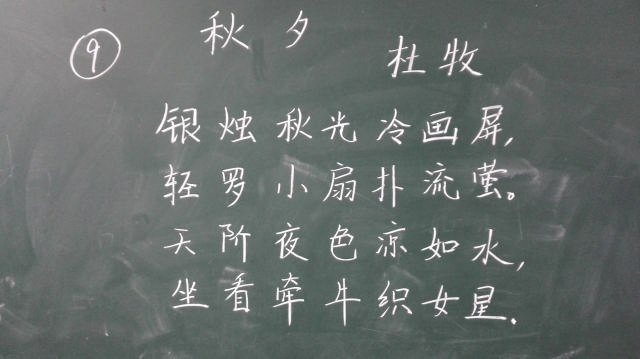 ⑨
秋夕
杜牧
银烛秋光冷画屏,
轻罗小扇扑流萤。
天阶夜色凉如水,
坐看牵牛织女星.